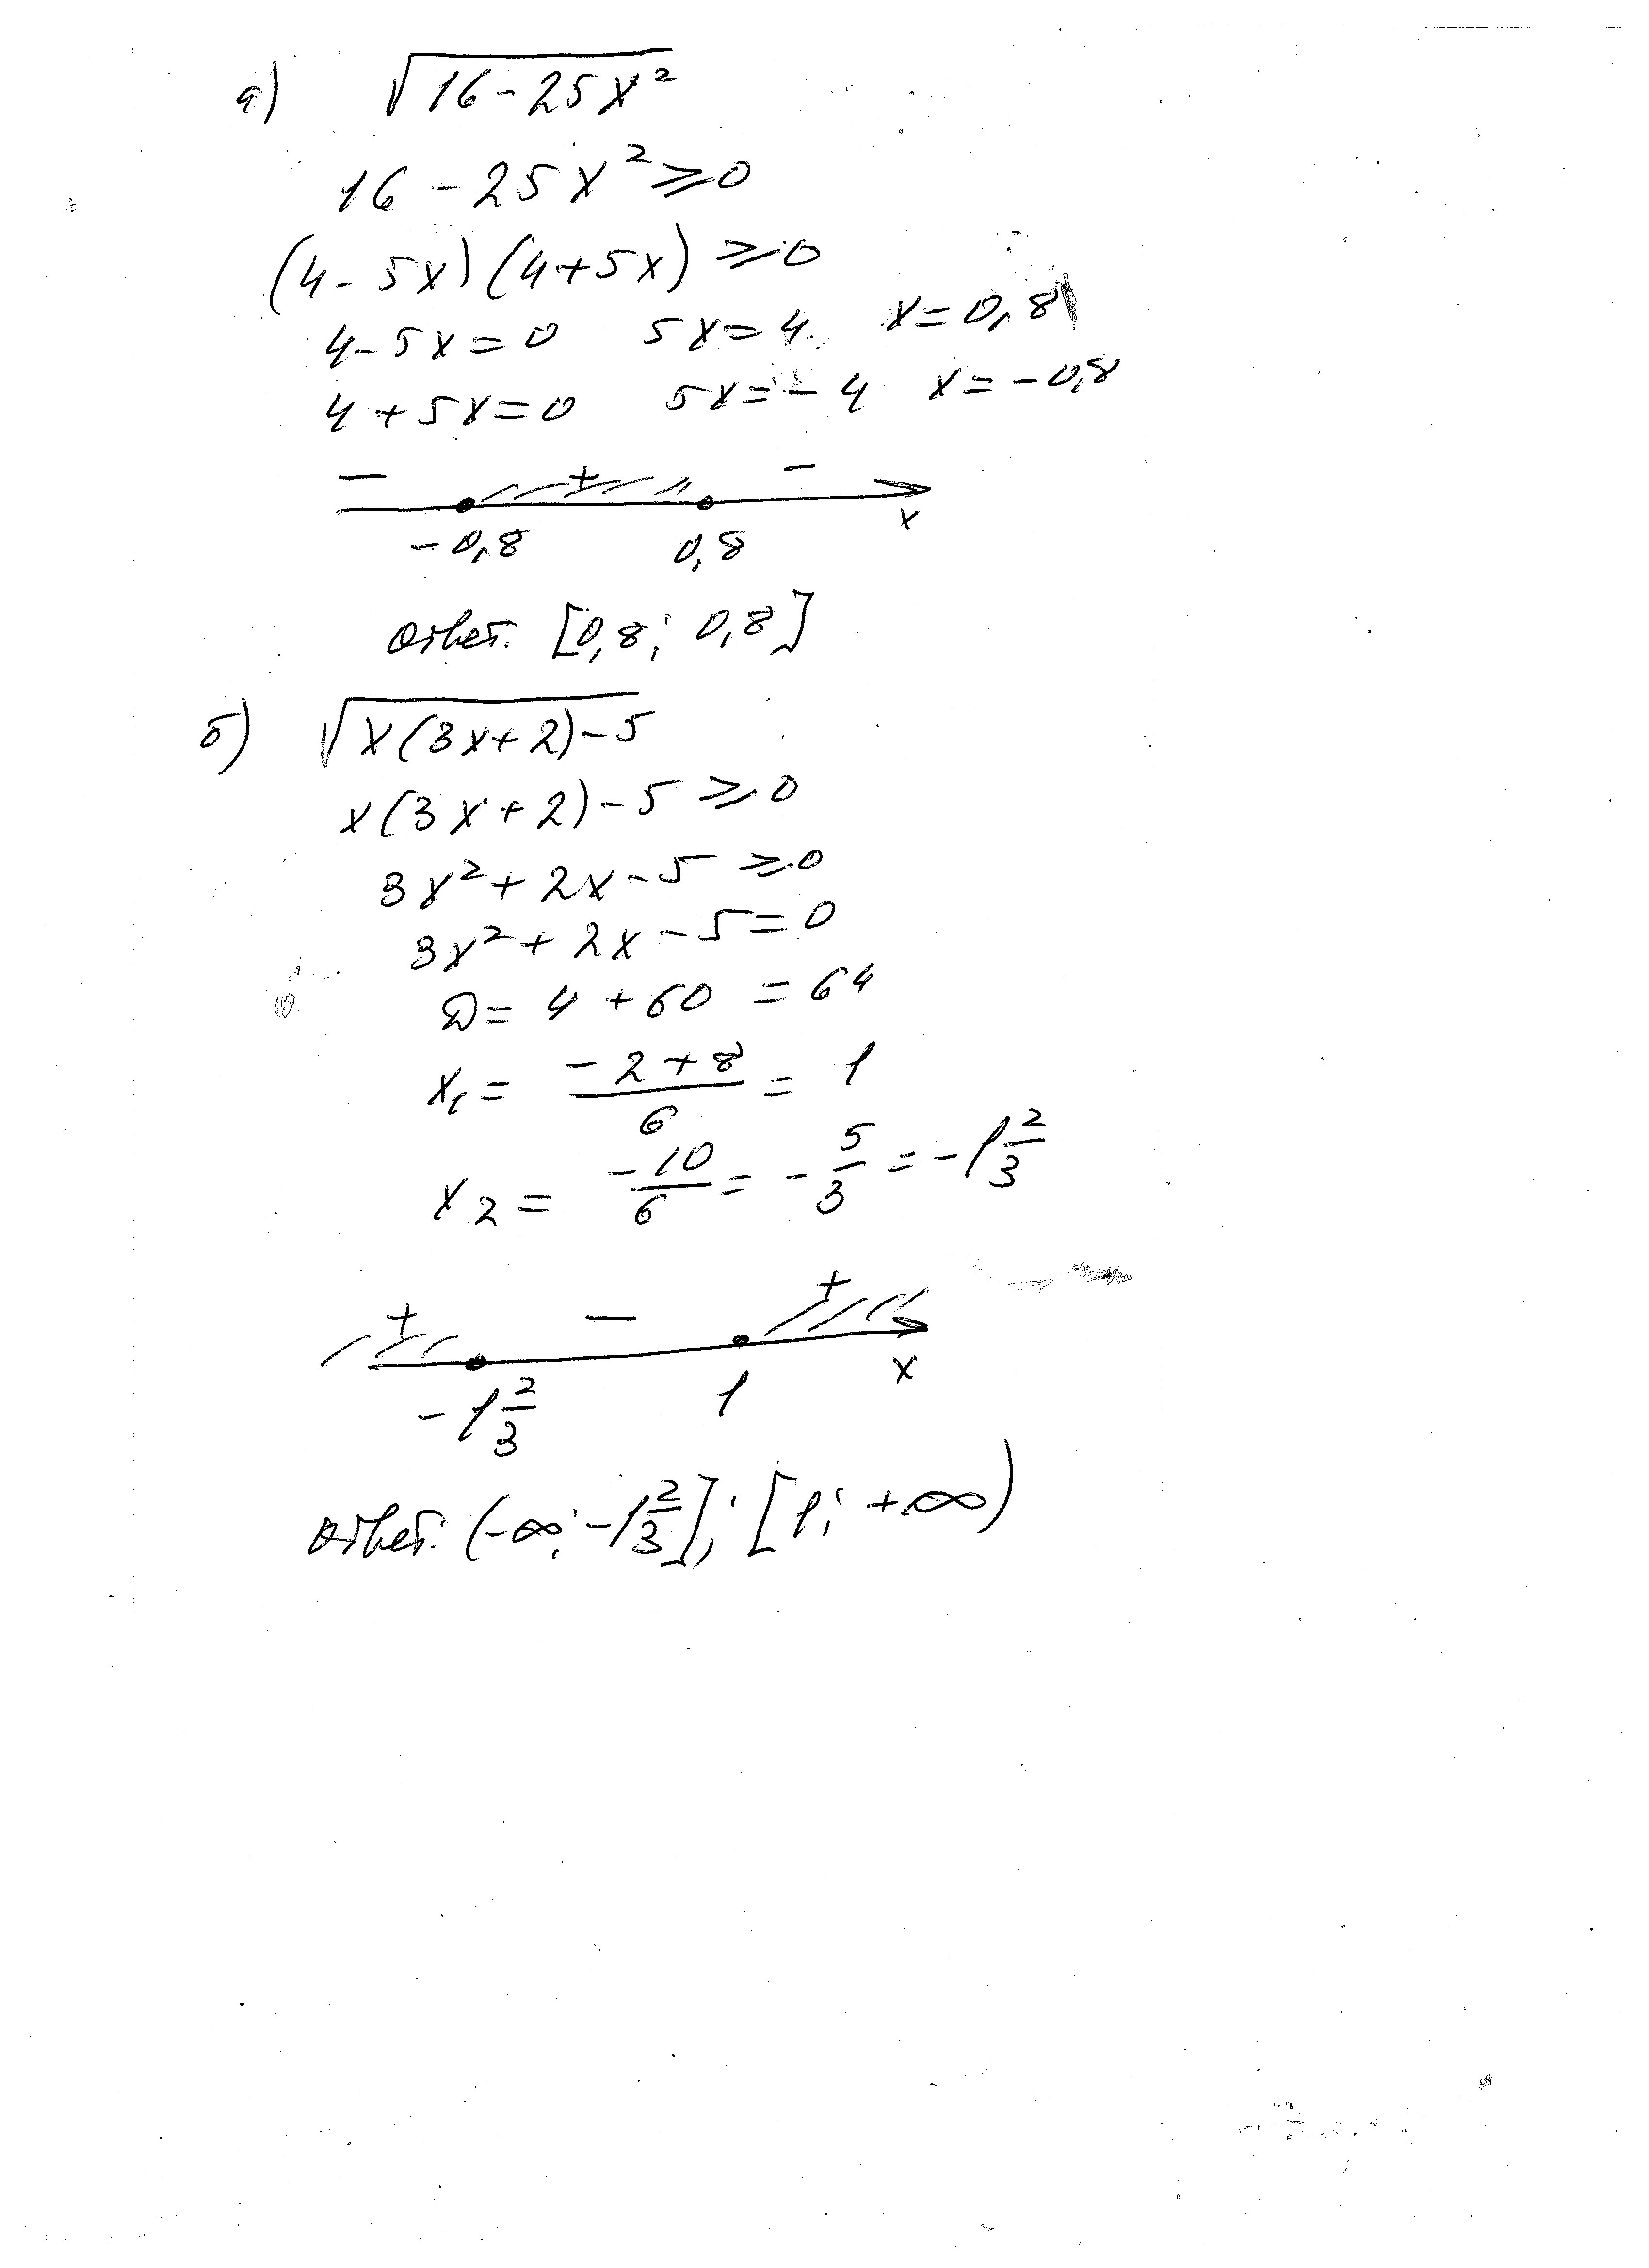 а) √16-25x²
16-25x²⩾0
(4-5x)(4+5x)⩾0
4-5x=0 5x=4 x=0,8
4+5x=0 5x=-4 x=-0,8
- + -
-0,8 0,8 x
Ответ. [0,8; 0,8]
б) √x(3x+2)-5
x(3x+2)-5⩾0
3x²+2x-5⩾0
3x²+2x-5=0
D=4+60=64
x₁=(-2+8)/6=1
x₂=-10/6=-5/3=-1 2/3
+ - +
-1 2/3 1 x
Ответ. (-∞; -1 2/3]; [1; +∞)